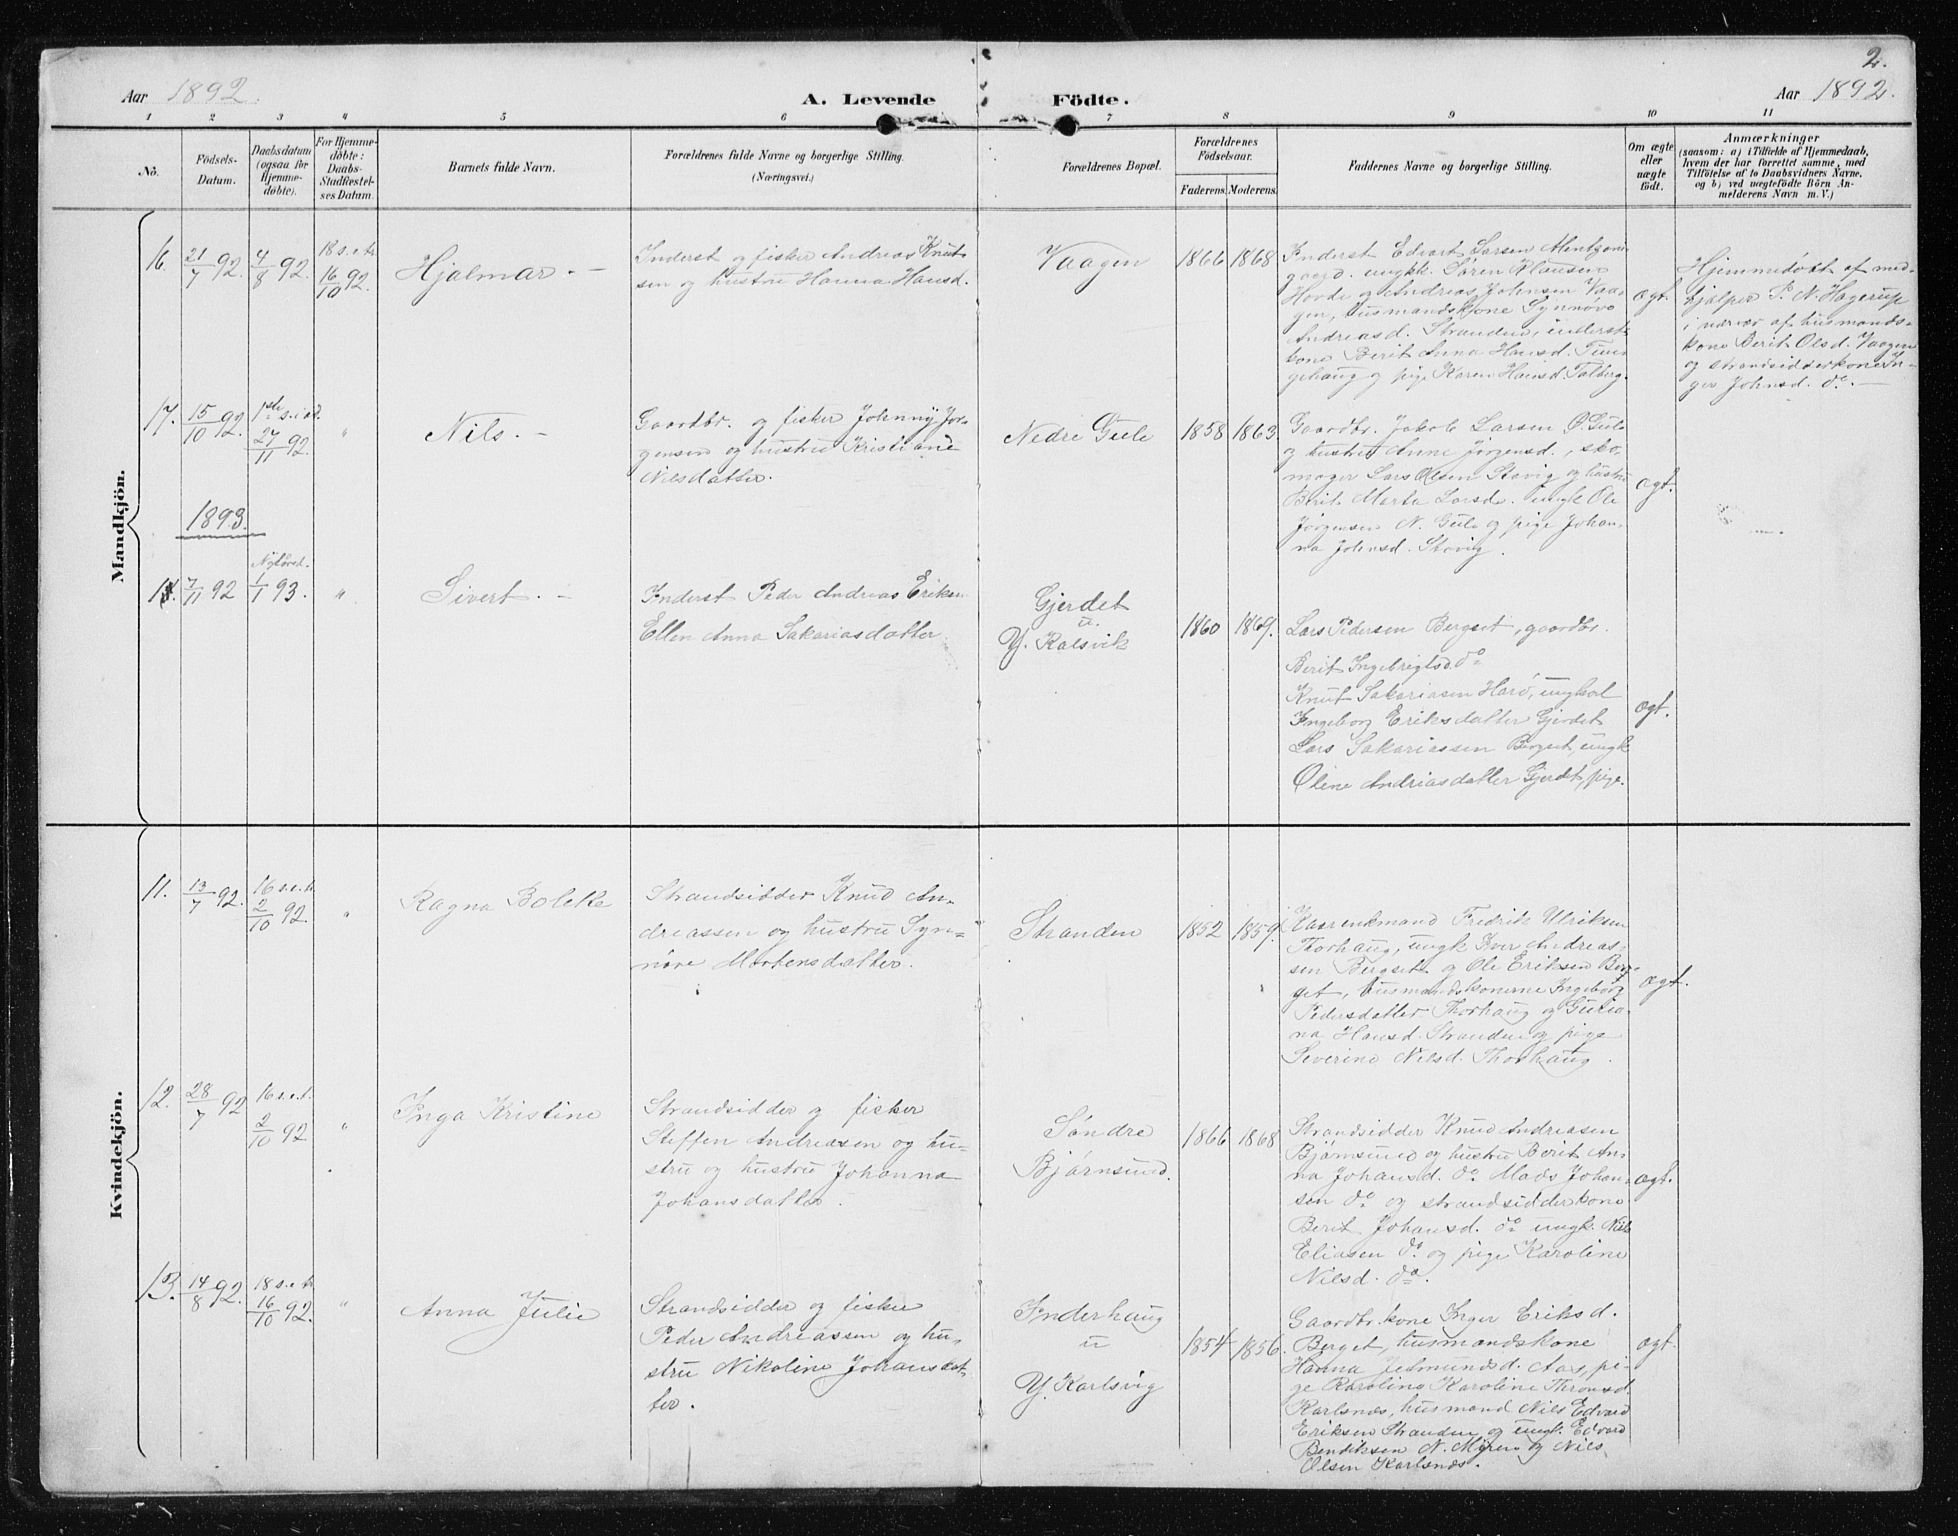 2.
Aar 1892. A. Levende Födte. Aar 1892.
1 2 3 4 5 6 7 8 9 10 11
No.
Födsels-
Datum.
Daabsdatum
(ogsaa for
Hjemme-
döbte).
For Hjemme-
döbte:
Daabs-
Stadfæstel-
ses Datum.
Barnets fulde Navn.
Forældrenes fulde Navne og borgerlige Stilling.
(Næringsvei.)
Forældrenes Bopæl.
Forældrenes
Födselsaar.
Faderens. Moderens.
Faddernes Navne og borgerlige Stilling.
Om ægte
eller
uægte
födt.
Anmærkninger
(saasom: a) i Tilfælde af Hjemmedaab,
hvem der har forrettet samme, med
Tilföielse af to Daabsvidners Navne.
og b) ved uægtefödte Börn An-
melderens Navn m. V.)
Mandkjön.
16.
21/7 92.
4/8 92.
18 s.e.tr.
16/10 92.
Hjalmar. -
Inderst og fisker Andreas Knut-
sen og hustru Hanna Hansd.
Vaagen
1866 1868
Inderst Edvart Larsen
gaard. ungk. Søren Klausen
Hovde og Andreas Johnsen Vaa-
gen, husmandskone Synnøve
Andreasd. Stranden, inderst
kone Berit Anna Hansd.
gehaug og pige Karen Hansd. Talberg.
ægt.
Hjemmedøbt af med-
hjælper P. N. Hagerup
i nærvær af husmands-
kone Berit Olsd. Vaagen
og strandsidderkone In-
ger Johnsd. do. -
17.
15/10 92.
1ste s. i ad.
27/11 92.
"
Nils. -
Gaardbr. og fisker Johnny Jør-
gensen og hustru Kristiane
Nilsdatter.
Nedre Gule
1858 1863.
Gaardbr. Jakob Larsen Ø. Gule
og hustru Anne Jørgensd., sko-
mager Lars Olsen Stavig og hustru
Berit Marta Larsd. ungk. Ole
Jørgensen N. Gule og pige Johan-
na Johnsd. Stavig.
ægt.
1893.
18.
7/11 92
Nytaarsd.
1/1 93.
"
Sivert. -
Inderst Peder Andreas Eriksen
Ellen Anna Sakariasdatter.
Gjerdet
u.
Y. Kalsvik
1860 1869.
Lars Pedersen Bergset, gaardbr.
Berit Ingebrigtsd. do
Knut Sakariasen Harø, ungkal
Ingeborg Eriksdatter Gjerdet
Lars Sakariassen Bergset, ungk
Oline Andriasdatter Gjerdet, pige.
ægt.
Kvindekjön.
11.
13/7 92.
16 s.e.tr.
2/10 92.
"
Ragna Bolette
Strandsidder Knud An-
dreassen og hustru Syn-
növe Mortensdatter.
Stranden
1852 1859.
Kaarenkmand Fredrik Ulriksen
Thorhaug, ungk Iver Andreas-
sen Bergset. og Ole Eriksen Ber-
get, husmandskonerne Ingeborg
Pedersdatter Thorhaug og Guria-
na Hansd. Stranden og pige
Severine Nilsd. Thorhaug.
ægt.
12.
28/7 92
16 s.e.t.
2/10 92
"
Inga Kristine
Strandsidder og fisker
Steffen Andreasen og hu-
stru og hustru Johanna
Johansdatter.
Søndre
Bjørnsund.
1866 1868
Strandsidder Knud Andreasen
Bjørnsund og hustru Berit An-
na Johansd. do. Mads Johan-
sen do og strandsidderkone
Berit Johansd. do ungk. Nils
Eliasen do. og pige Karoline
Nilsd. do.
ægt.
13.
14/8 92.
18 s.e.tr.
16/10 92.
"
Anna Julie
Strandsidder og fisker
Peder Andreassen og hu-
stru Nikoline Johansdat-
ter.
Inderhaug
u
Y. Karlsvig
1854 1856.
Gaardbr. kone Inger Eriksd.
Berget, husmandskone
Hanna Aas, pi-
ge Karoline Karoline Thronsd.
Karlsnæs, husmand Nils Edvard
Eriksen Stranden og ungk. Edvard
Bendiksen N. Myren og Nils
Olsen Karlsnæs.
ægt.